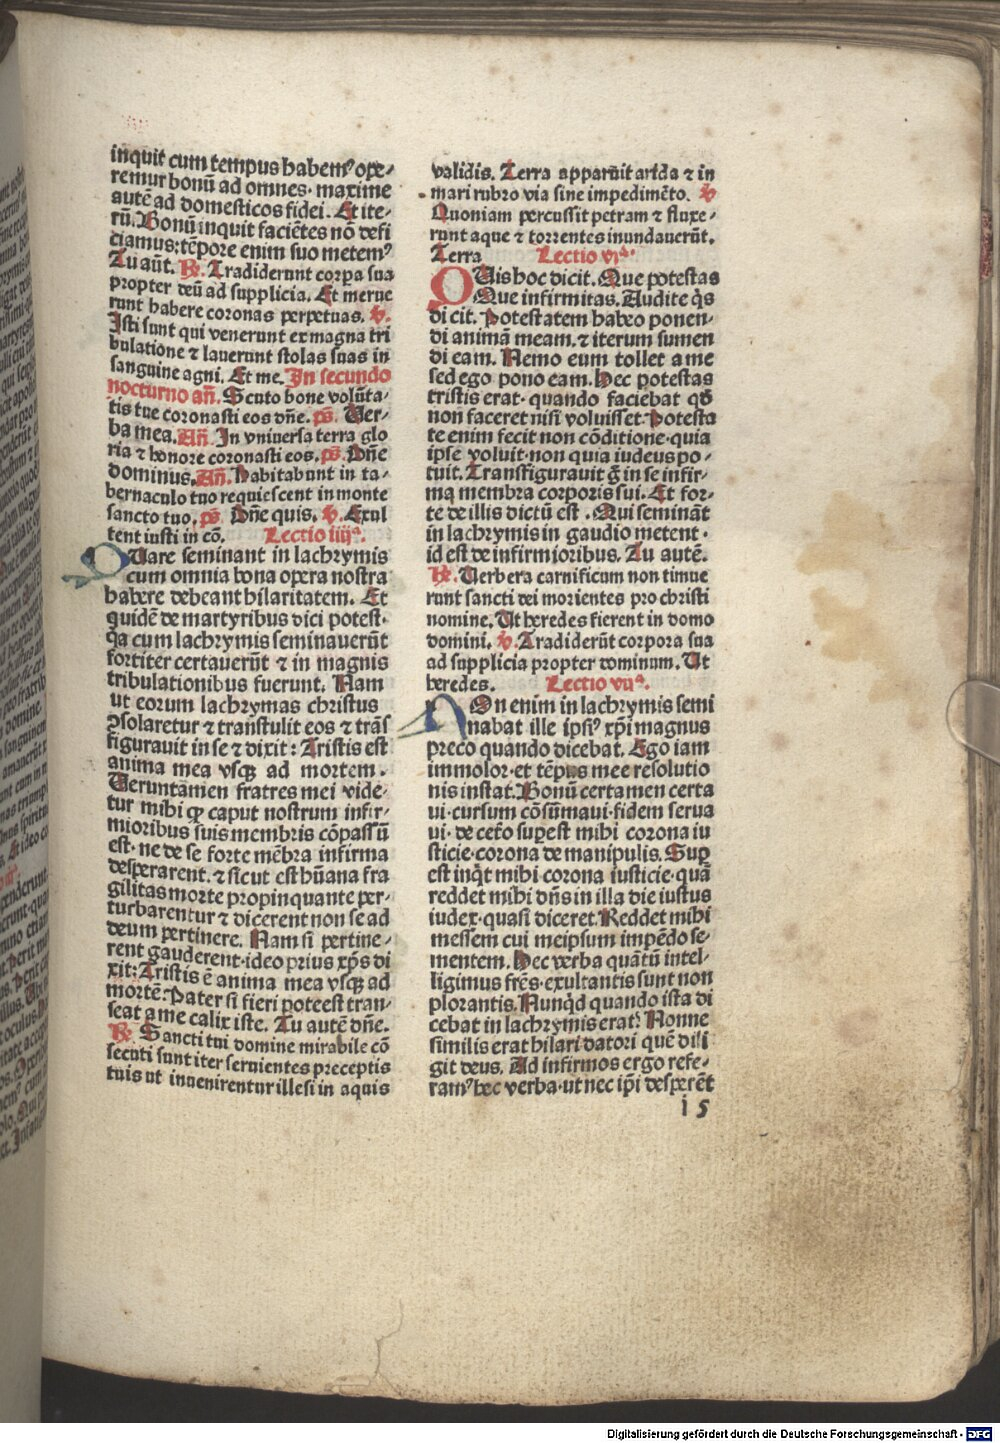 inquit cum tempus habemꝰ ope⸗
remur bonū ad omnes· maxime
autē ad domesticos fidei. Et ite⸗
rū. Bonū inquit faciētes nō defi
ciamus: tēpore enim suo metemꝰ
Tu aūt. ℟. Tradiderunt corpa sua
propter deū ad supplicia. Et merue
runt habere coronas perpetuas. ℣.
Isti sunt qui venerunt ex magna tri
bulatione ⁊ lauerunt stolas suas in
sanguine agni. Et me. In secundo
nocturno añ. Scuto bone volūta⸗
tis tue coronasti eos dñe. ps̄. Ver⸗
ba mea. Añ. In vniuersa terra glo
ria ⁊ honore coronasti eos. ps̄. Dñe
dominus. Añ. Habitabunt in ta⸗
bernaculo tuo requiescent in monte
sancto tuo. ps̄. Dñe quis. ℣. Exul
tent iusti in cō. Lectio iiijª.
QUare seminant in lachrymis
cum omnia bona opera nostra
habere debeant hilaritatem. Et
quidē de martyribus dici potest·
q̄a cum lachrymis seminauerūt
fortiter certauerūt ⁊ in magnis
tribulationibus fuerunt. Nam
ut eorum lachrymas christus
ꝯsolaretur ⁊ transtulit eos ⁊ trās
figurauit in se ⁊ dixit: Tristis est
anima mea vsqꝫ ad mortem.
Ueruntamen fratres mei vide⸗
tur mihi ꝙ caput nostrum infir⸗
mioribus suis membris cōpassū
est· ne de se forte mēbra infirma
desperarent. ⁊ sicut est hūana fra
gilitas morte propinquante per⸗
turbarentur ⁊ dicerent non se ad
deum pertinere. Nam si pertine⸗
rent gauderent· ideo prius xp̄s di
xit: Tristis ē anima mea vsqꝫ ad
mortē: Pater si fieri poteest tran⸗
seat a me calix iste. Tu autē dñe.
℟. Sancti tui domine mirabile cō
secuti sunt iter seruientes preceptis
tuis ut inuenirentur illesi in aquis
validis. Terra apparuit arida ⁊ in
mari rubro via sine impedimēto. ℣
Quoniam percussit petram ⁊ fluxe⸗
runt aque ⁊ torrentes inundauerūt.
Terra Lectio vª.
QUis hoc dicit. Que potestas
Que infirmitas. Audite q̄s
dicit. Potestatem habeo ponen⸗
di animā meam. ⁊ iterum sumen
di eam. Nemo eum tollet a me
sed ego pono eam. Hec potestas
tristis erat· quando faciebat qđ
non faceret nisi voluisset. Potesta
te enim fecit non cōditione· quia
ipse voluit· non quia iudeus po⸗
tuit. Transfigurauit g̃ in se infir⸗
ma membra corporis sui. Et for⸗
te de illis dictū est. Qui semināt
in lachrymis in gaudio metent·
id est de infirmioribus. Tu autē.
℟. Uerbera carnificum non timue
runt sancti dei morientes pro christi
nomine. Ut heredes fierent in domo
domini. ℣. Tradiderūt corpora sua
ad supplicia propter dominum. Ut
heredes. Lectio viª.
NOn enim in lachrymis semi
nabat ille ipsiꝰ xp̄i magnus
preco quando dicebat. Ego iam
immolor· et tēpus mee resolutio
nis instat. Bonū certamen certa
ui· cursum cōsūmaui· fidem serua
ui· de cet̄o suꝑest mihi corona iu
sticie· corona de manipulis. Suꝑ
est inq̄t mihi corona iusticie· quā
reddet mihi dñs in illa die iustus
iudex· quasi diceret. Reddet mihi
messem cui meipsum impēdo se⸗
mentem. Hec verba quātū intel⸗
ligimus frēs· exultantis sunt non
plorantis. Nunq̄d quando ista di
cebat in lachrymis erat? Nonne
similis erat hilari datori quē dili
git deus. Ad infirmos ergo refe⸗
ramꝰ hec verba· ut nec ip̄i desperēt
i 5
Digitalisierung gefördert durch die Deutsche Forschungsgemeinschaft - DFG